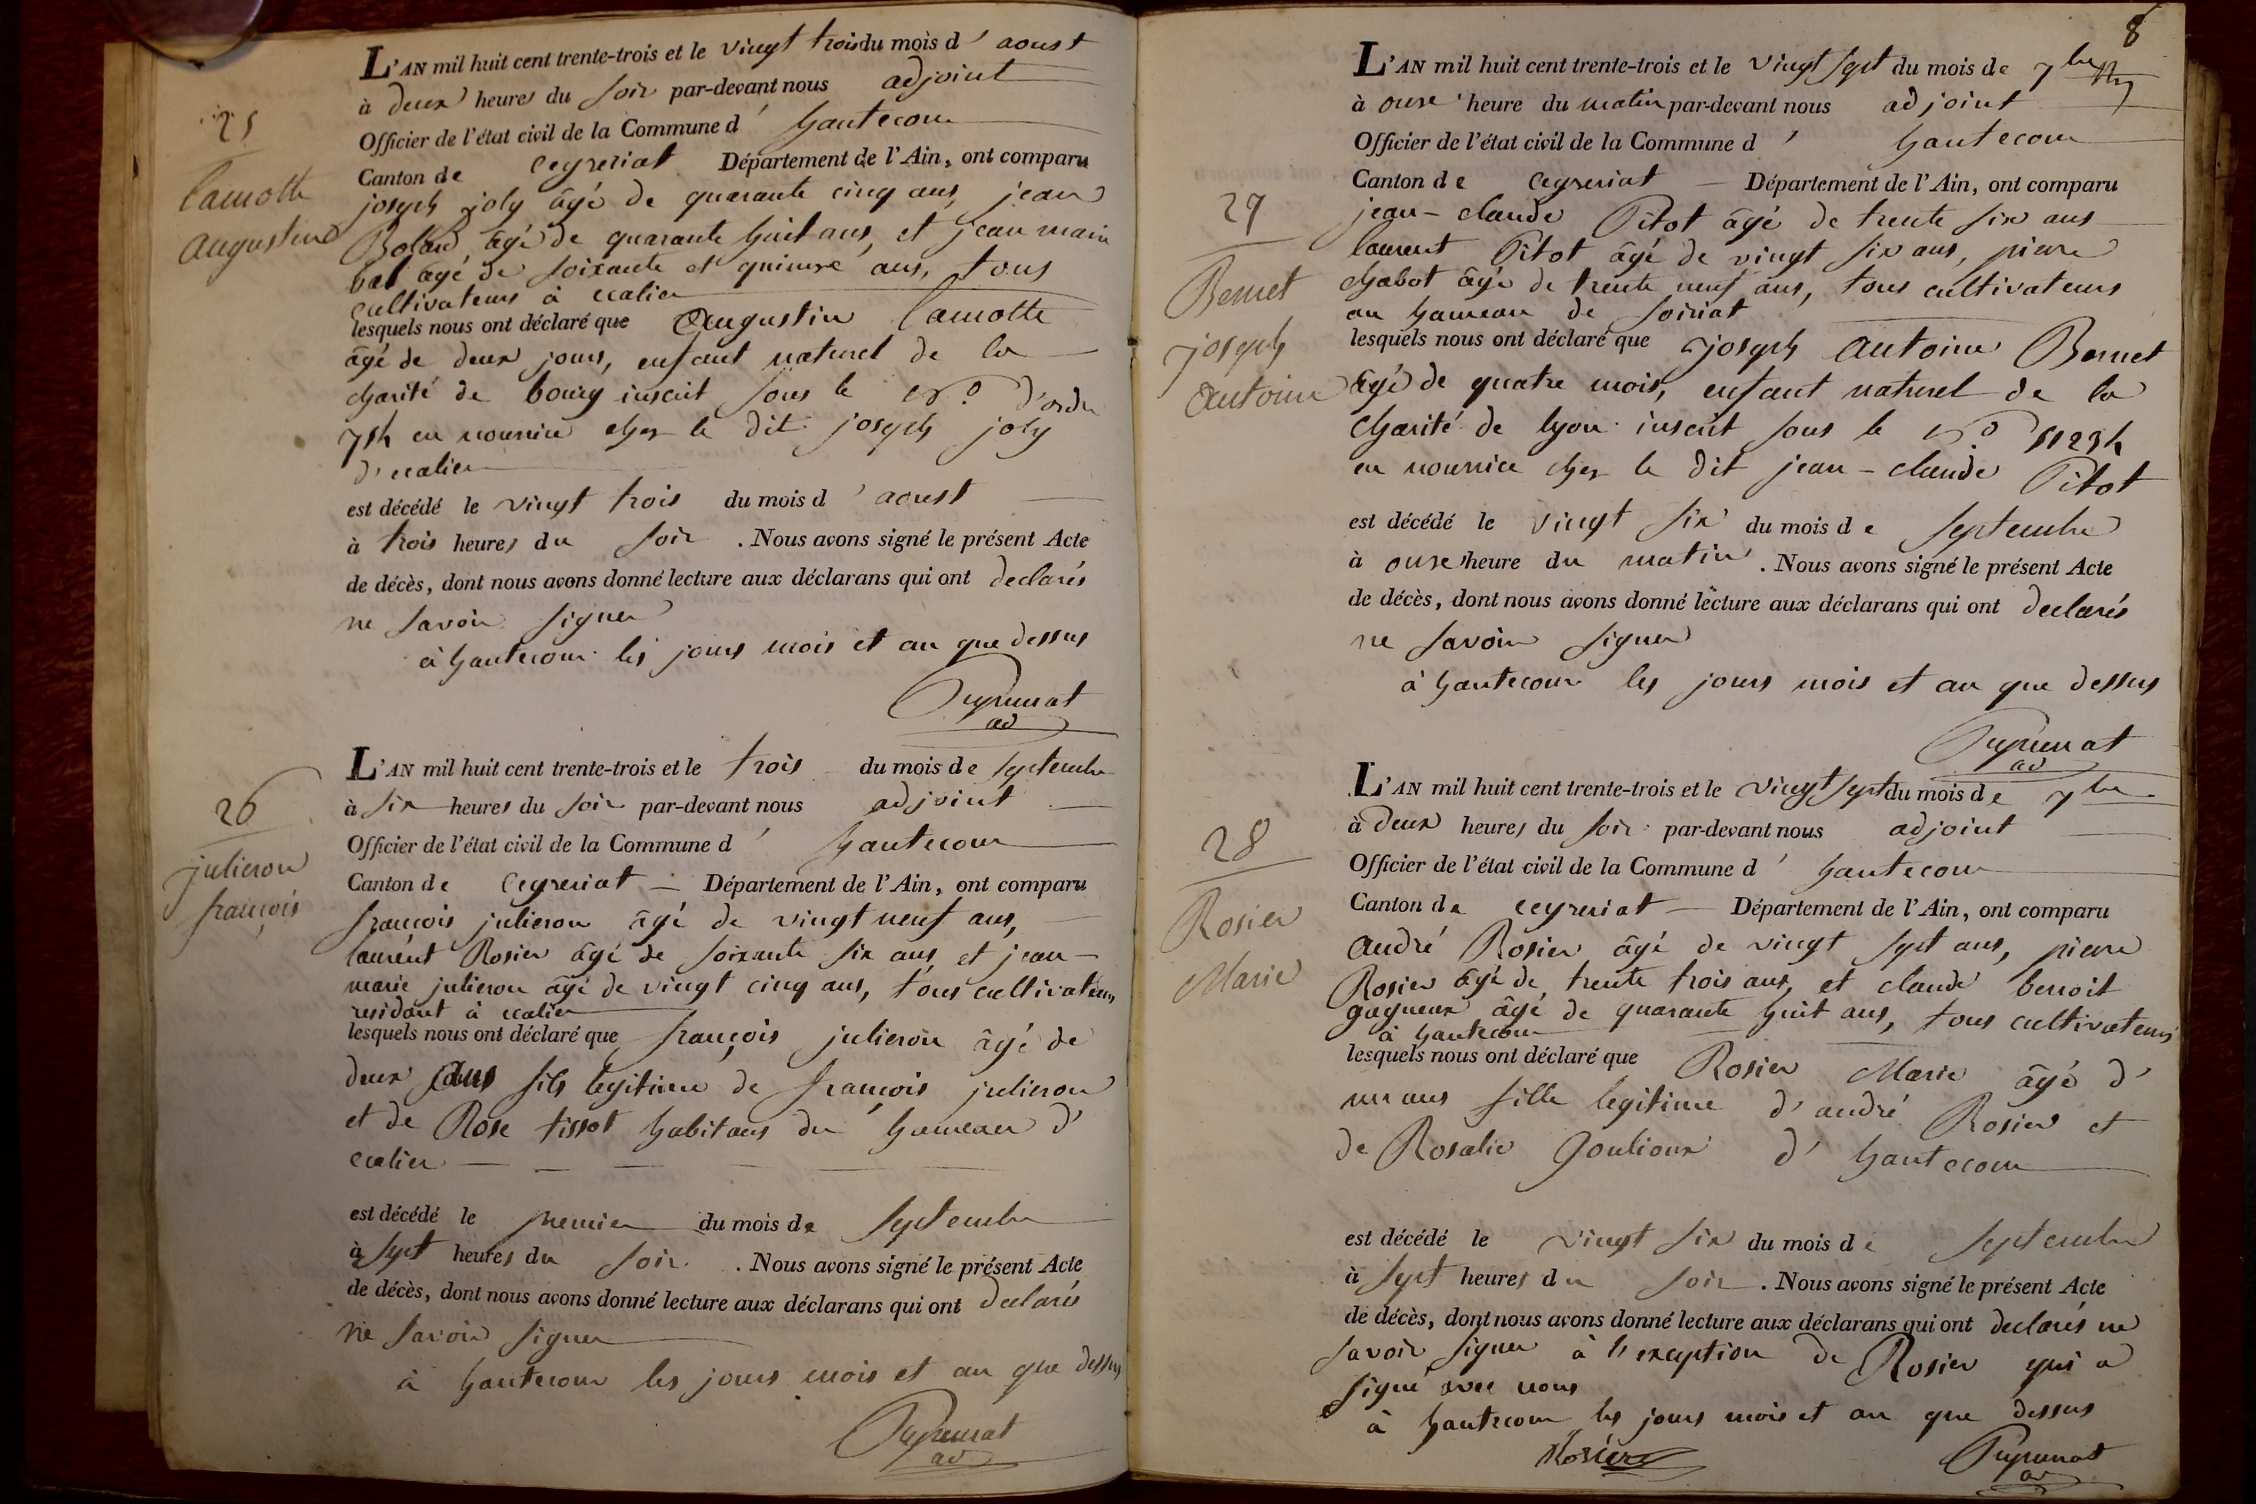 25
Lamotte
Augustin
L'AN mil huit cent trente-trois et le vingt trois du mois d' aoust
à deux heures du soir par-devant nous adjoint
Officier de l'état civil de la Commune d' hautecour
Canton de ceyseriat Département de l'Ain, ont comparu
joseph joly âgé de quarante cinq ans, jean
âgé de quarante huit ans, et jean marie
âgé de soixante et quinze ans, tous
cultivateurs à
lesquels nous ont déclaré que Augustin Lamotte
âgé de deux jours, enfant naturel de la
charité de bourg inscrit sous le No. d'ordre
en nourrice chez le dit joseph joly
est décédé le vingt trois du mois d' aoust
à trois heures du soir . Nous avons signé le présent Acte
de décès, dont nous avons donné lecture aux déclarans qui ont declarés
ne savoir signer
à hautecour les jours mois et an que dessus
ad
26
julieron
françois
L'AN mil huit cent trente-trois et le trois du mois de septembre
à six heures du soir par-devant nous adjoint
Officier de l'état civil de la Commune d' hautecour
Canton de ceyseriat Département de l'Ain, ont comparu
françois julieron âgé de vingt neuf ans,
laurent Rosier âgé de soixante six ans et jean-
marie julieron âgé de vingt cinq ans, tous cultivateurs
residant à
lesquels nous ont déclaré que françois julieron âgé de
deux ans fils legitime de françois julieron
et de Rose tissot habitans du hameau d'
est décédé le premier du mois de septembre
à sept heures du soir . Nous avons signé le présent Acte
de décès, dont nous avons donné lecture aux déclarans qui ont declarés
ne savoir signer
à hautecour les jours mois et an que dessus
ad
8
27
Bernet
joseph
Antoine
L'AN mil huit cent trente-trois et le vingt sept du mois de 7bre
à onze heure du matin par-devant nous adjoint
Officier de l'état civil de la Commune d' hautecour
Canton de ceyseriat Département de l'Ain, ont comparu
jean-claude Pitot âgé de trente six ans
laurent Pitot âgé de vingt six ans, pierre
chabot âgé de trente neuf ans, tous cultivateurs
au hameau de
lesquels nous ont déclaré que joseph Antoine Bernet
âgé de quatre mois, enfant naturel de la
charité de lyon inscrit sous le No.
en nourrice chez le dit jean-claude Pitot
est décédé le vingt six du mois de septembre
à onze heure du matin . Nous avons signé le présent Acte
de décès, dont nous avons donné lecture aux déclarans qui ont declarés
ne savoir signer
à hautecour les jours mois et an que dessus
ad
28
Rosier
Marie
L'AN mil huit cent trente-trois et le vingt sept du mois de 7bre
à deux heures du soir par-devant nous adjoint
Officier de l'état civil de la Commune d' hautecour
Canton de ceyseriat Département de l'Ain, ont comparu
André Rosier âgé de vingt sept ans, pierre
Rosier âgé de trente trois ans, et claude benoit
gagneux âgé de quarante huit ans, tous cultivateurs
à hautecour
lesquels nous ont déclaré que Rosier Marie âgé d'
un ans fille legitime d'andré Rosier et
de Rosalie Goulioux d' hautecour
est décédé le vingt six du mois de septembre
à sept heures du soir . Nous avons signé le présent Acte
de décès, dont nous avons donné lecture aux déclarans qui ont declarés ne
savoir signer à l'exception de Rosier qui a
signé avec nous
à hautecour les jours mois et an que dessus
Rosier
ad